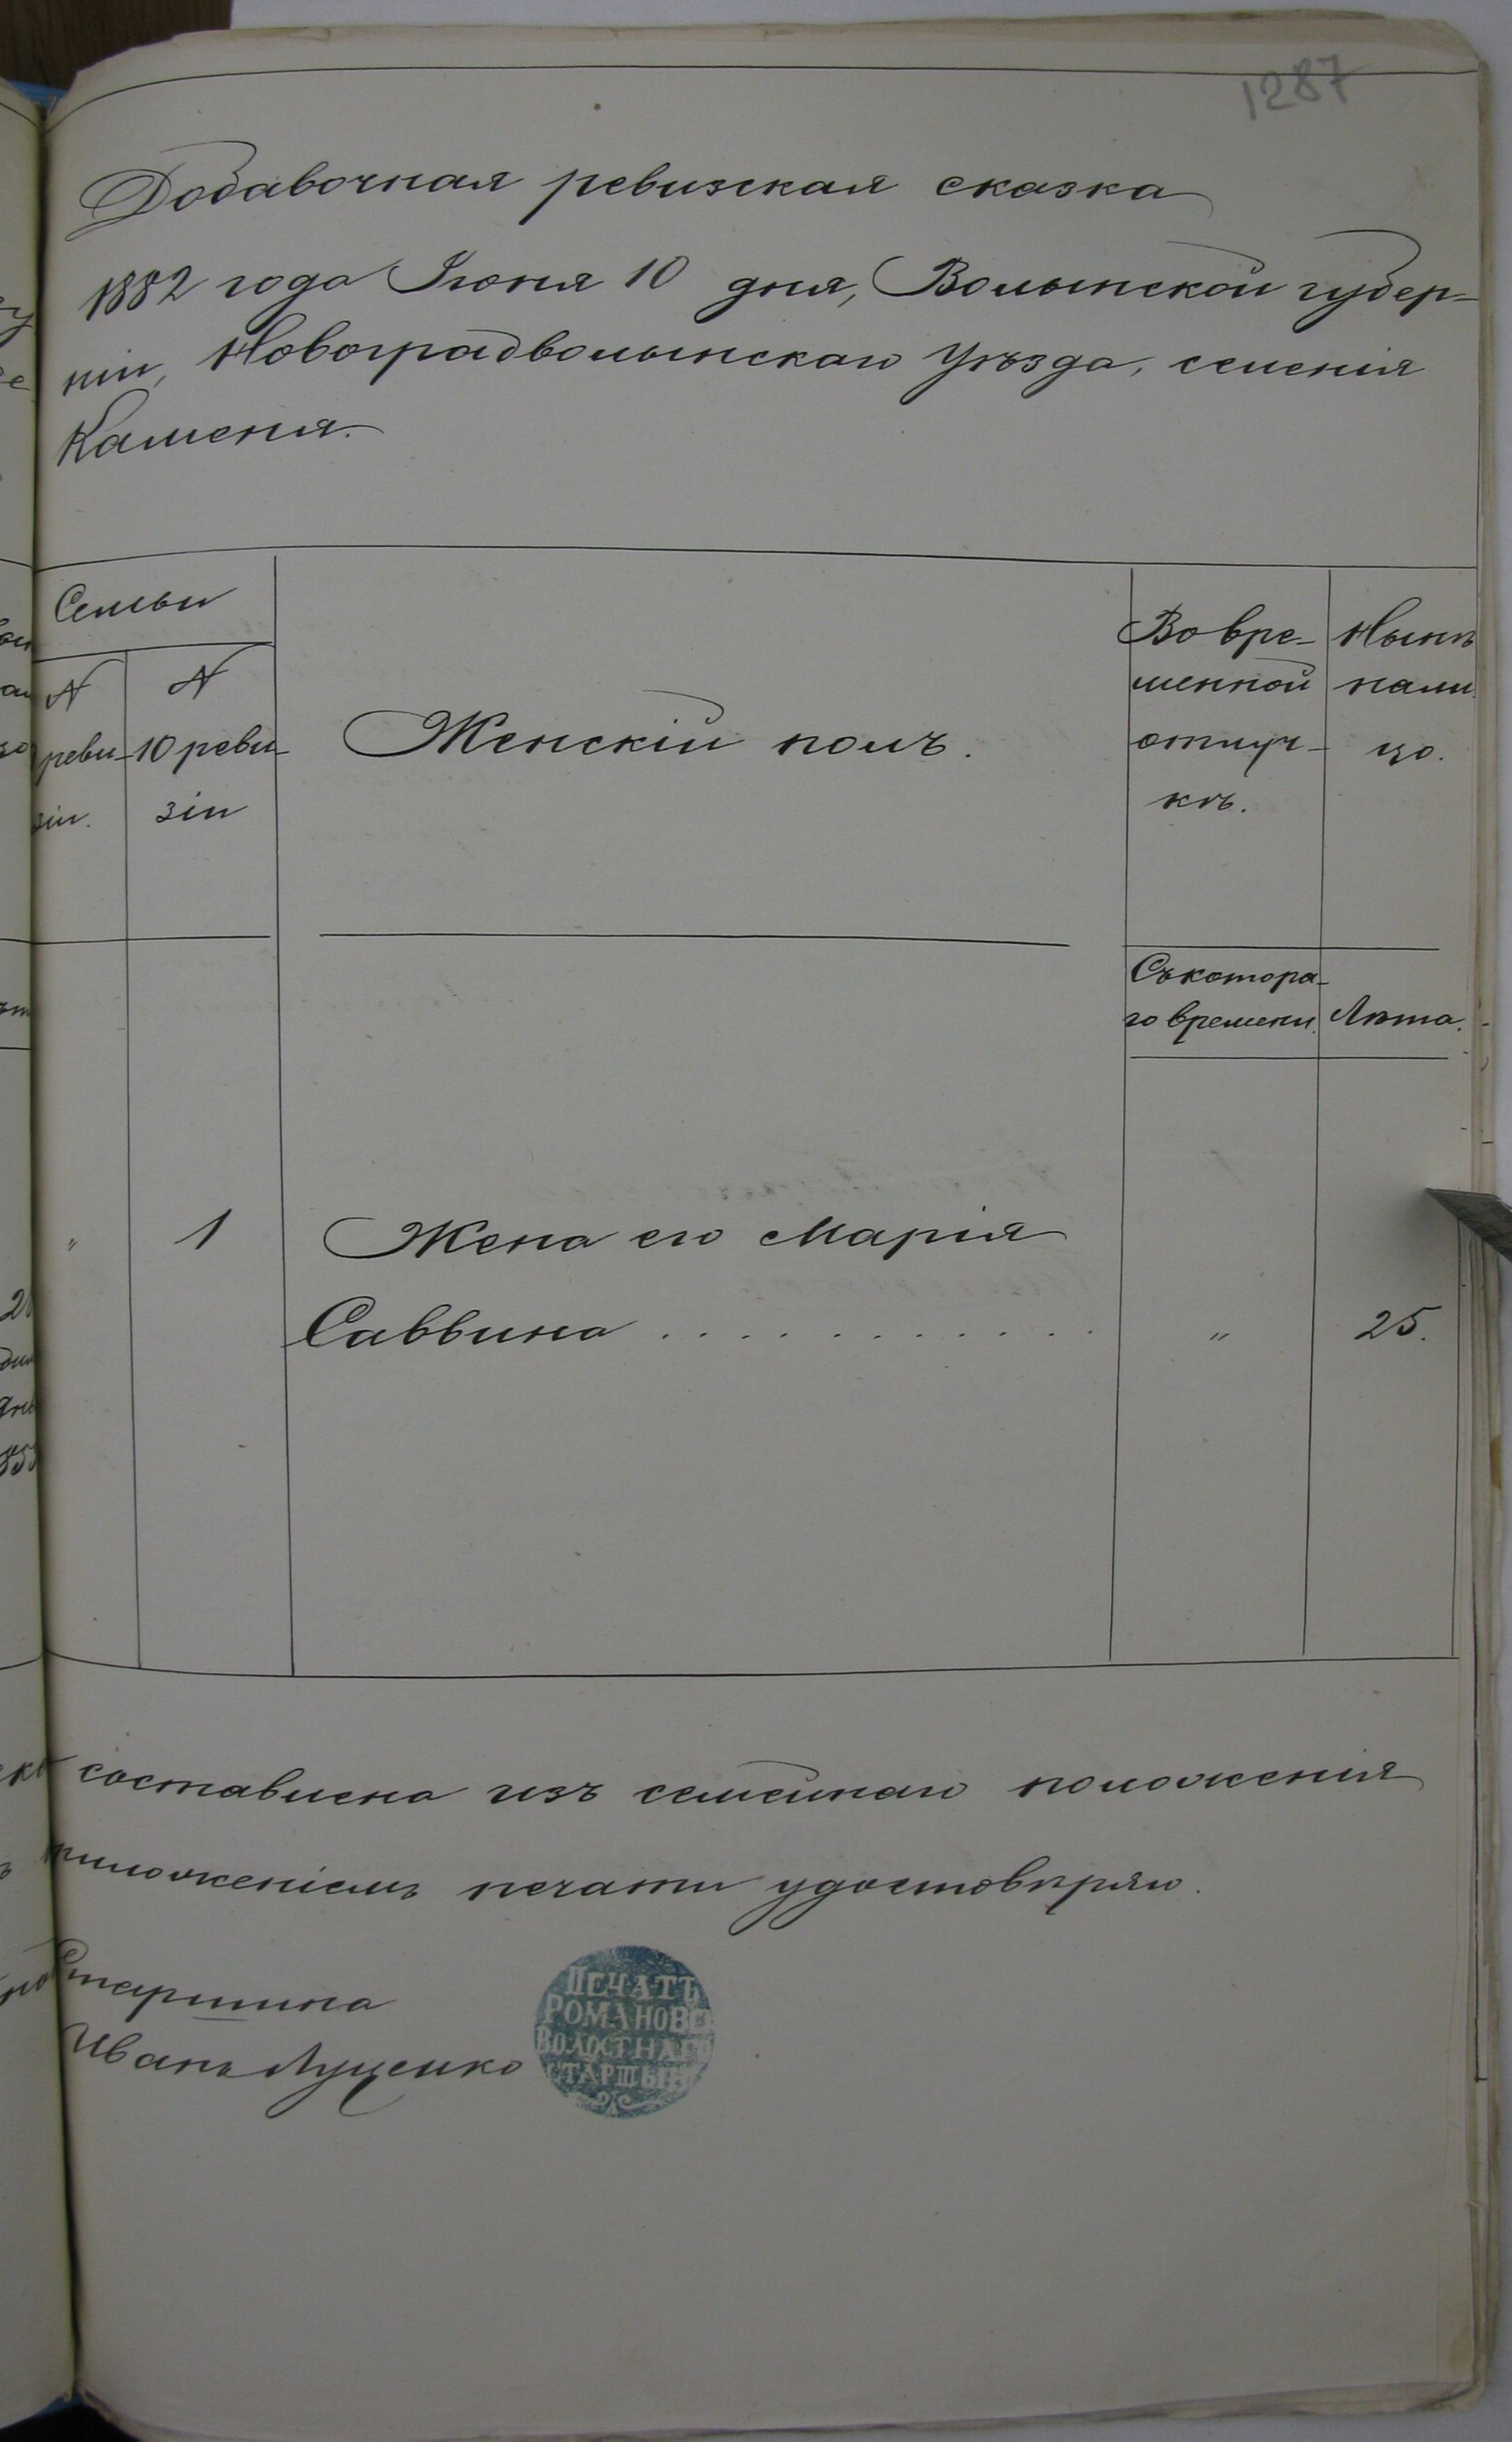 1287
Добавочная ревизская сказка
1882 года Іюня 10 дня, Волынской губер-
ніи, Новоградволынскаго Уѣзда, селенія
Каменя.
Семьи
№ реви-
зіи.
№
10 реви-
зіи
Женскій полъ.
Во вре-
менной
отлуч-
кѣ.
Нынѣ
нали
цо.
Съ котора-
го времени.
Лѣта.
" 1 Жена его Марія
Саввина . . . . . . . . . . . . . " 25.
составлена изъ семейнаго положенія
приложеніемъ печати удостовѣряю.
Старшина
Иванъ Луценко
ПЕЧАТЬ
РОМАНОВС
ВОЛОСТНАГО
СТАРШЫН